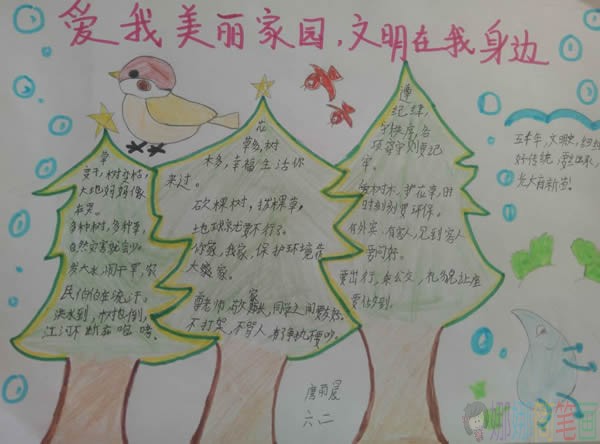 爱我美丽家园，文明在我身边
草
变黄，树身枯，
大地妈妈像
在哭。
多种树，多种草，
自然灾害就会少。
发大水，闹干旱，农
民伯伯在流汗。
洪水到，村庄倒，
江河不断在咆哮。
花
草多，树
木多，幸福生活你
来过。
砍棵树，拔棵草，
地球
你家，我家，保护环境靠
大家。
尊老师，敬家长，同学之间要友好。
不打架，不骂人，有了事
遵
纪律，
守秩序，各
项守则要记
牢。
爱树木，护花草，时
时刻刻要环保。
有外宾，有客人，见到客人
要问好。
要出行，乘公交，礼貌让座
要做到。
五千年，文明史，
好传统，要继承，
光大有新芽！
唐雨
六二